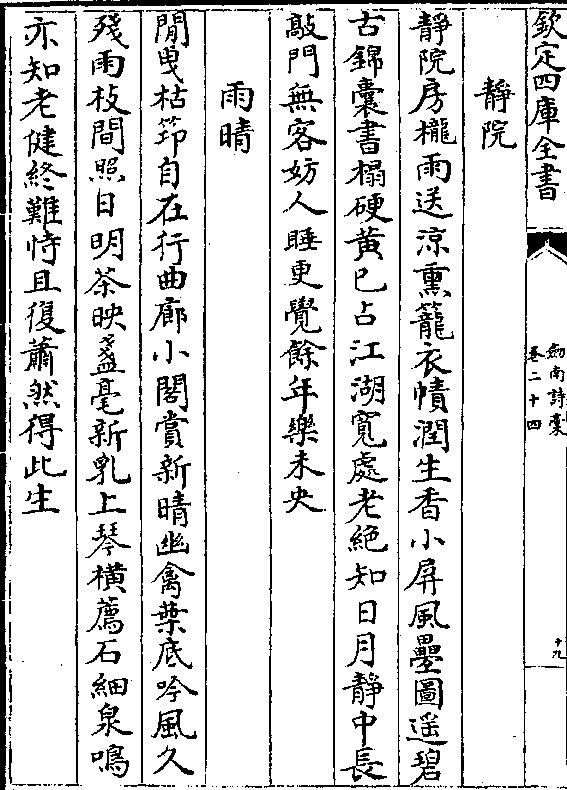 欽定四庫全書
劒南詩稾
卷二十四
十九
靜院
靜院房櫳雨送涼熏籠衣幘潤生香小屏風疊圖遥碧
古錦囊書搨硬黄已占江湖寛處老絶知日月靜中長
敲門無客妨人睡更覺餘年樂未央
雨晴
閒曳枯筇自在行曲廊小閣賞新晴幽禽葉底吟風久
殘雨枝間照日明茶映盞毫新乳上琴横薦石細泉鳴
亦知老健終難恃且復蕭然得此生